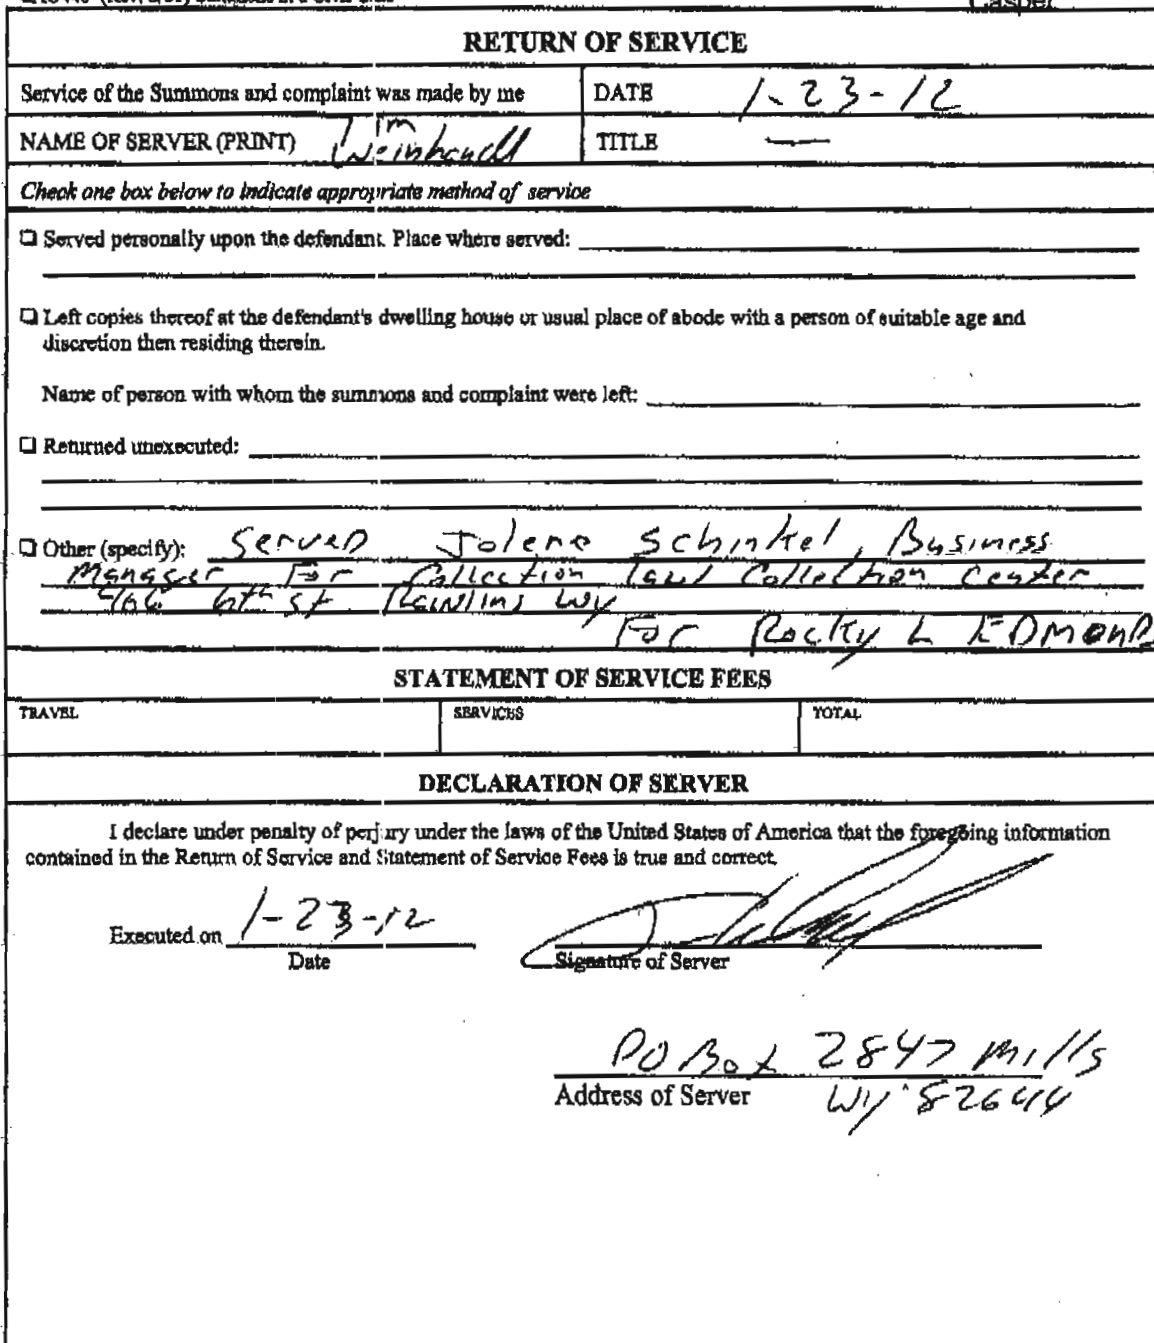 Casper
RETURN OF SERVICE
Service of the Summons and complaint was made by me
DATE 1-23-12
NAME OF SERVER (PRINT) Tim Weinhandl
TITLE —
Check one box below to indicate appropriate method of service
☐ Served personally upon the defendant. Place where served:
☐ Left copies thereof at the defendant's dwelling house or usual place of abode with a person of suitable age and
discretion then residing therein.
Name of person with whom the summons and complaint were left:
☐ Returned unexecuted:
☐ Other (specify): Served Jolene Schinkel, Business
Manager For Collection Collection Center
6th st Rawlins Wy
For Rocky L EDmonD
STATEMENT OF SERVICE FEES
TRAVEL SERVICES TOTAL
DECLARATION OF SERVER
I declare under penalty of perjury under the laws of the United States of America that the foregoing information
contained in the Return of Service and Statement of Service Fees is true and correct.
Executed on 1-23-12
Date Signature of Server
PO Box 2847 Mills
Address of Server Wy 82644